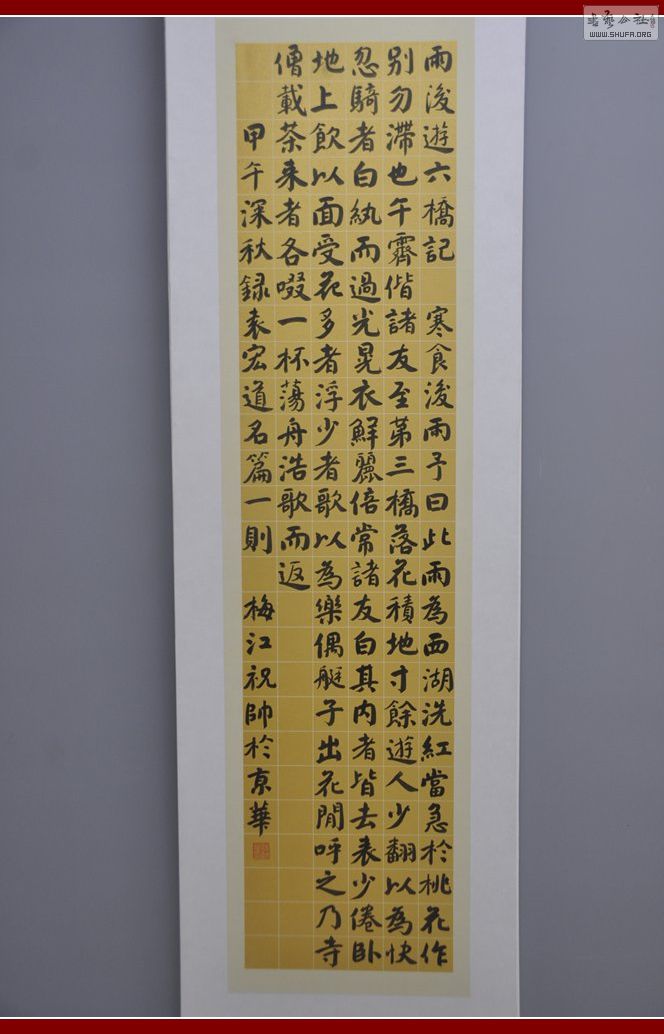 雨後遊六橋記 寒食後雨予曰此雨為西湖洗紅當急於桃花作
别勿滯也午霽偕諸友至第三橋落花積地寸餘遊人少翻以為快
忽騎者白紈而過光晃衣鮮麗倍常諸友白其内者皆去表少倦卧
地上飲以面受花多者浮少者歌以為樂偶艇子出花閒呼之乃寺
僧載茶来者各啜一杯蕩舟浩歌而返
甲午深秋録袁宏道名篇一則 梅江祝帥於京華
書藝公社
WWW.SHUFA.ORG